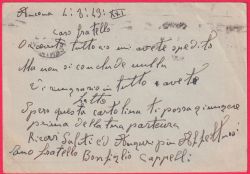 Ancona 4. 8. 43. XXI
Caro fratello
O ricevuto tutto avete spedito
Ma non si conclude nulla
Vi ringrazio in tutto avete
fatto
Spero questa cartolina ti possa giungere
prima della tua partenza
Ricevi Saluti ed Auguri più Affettuosi
tuo fratello Bonfiglio Cappelli